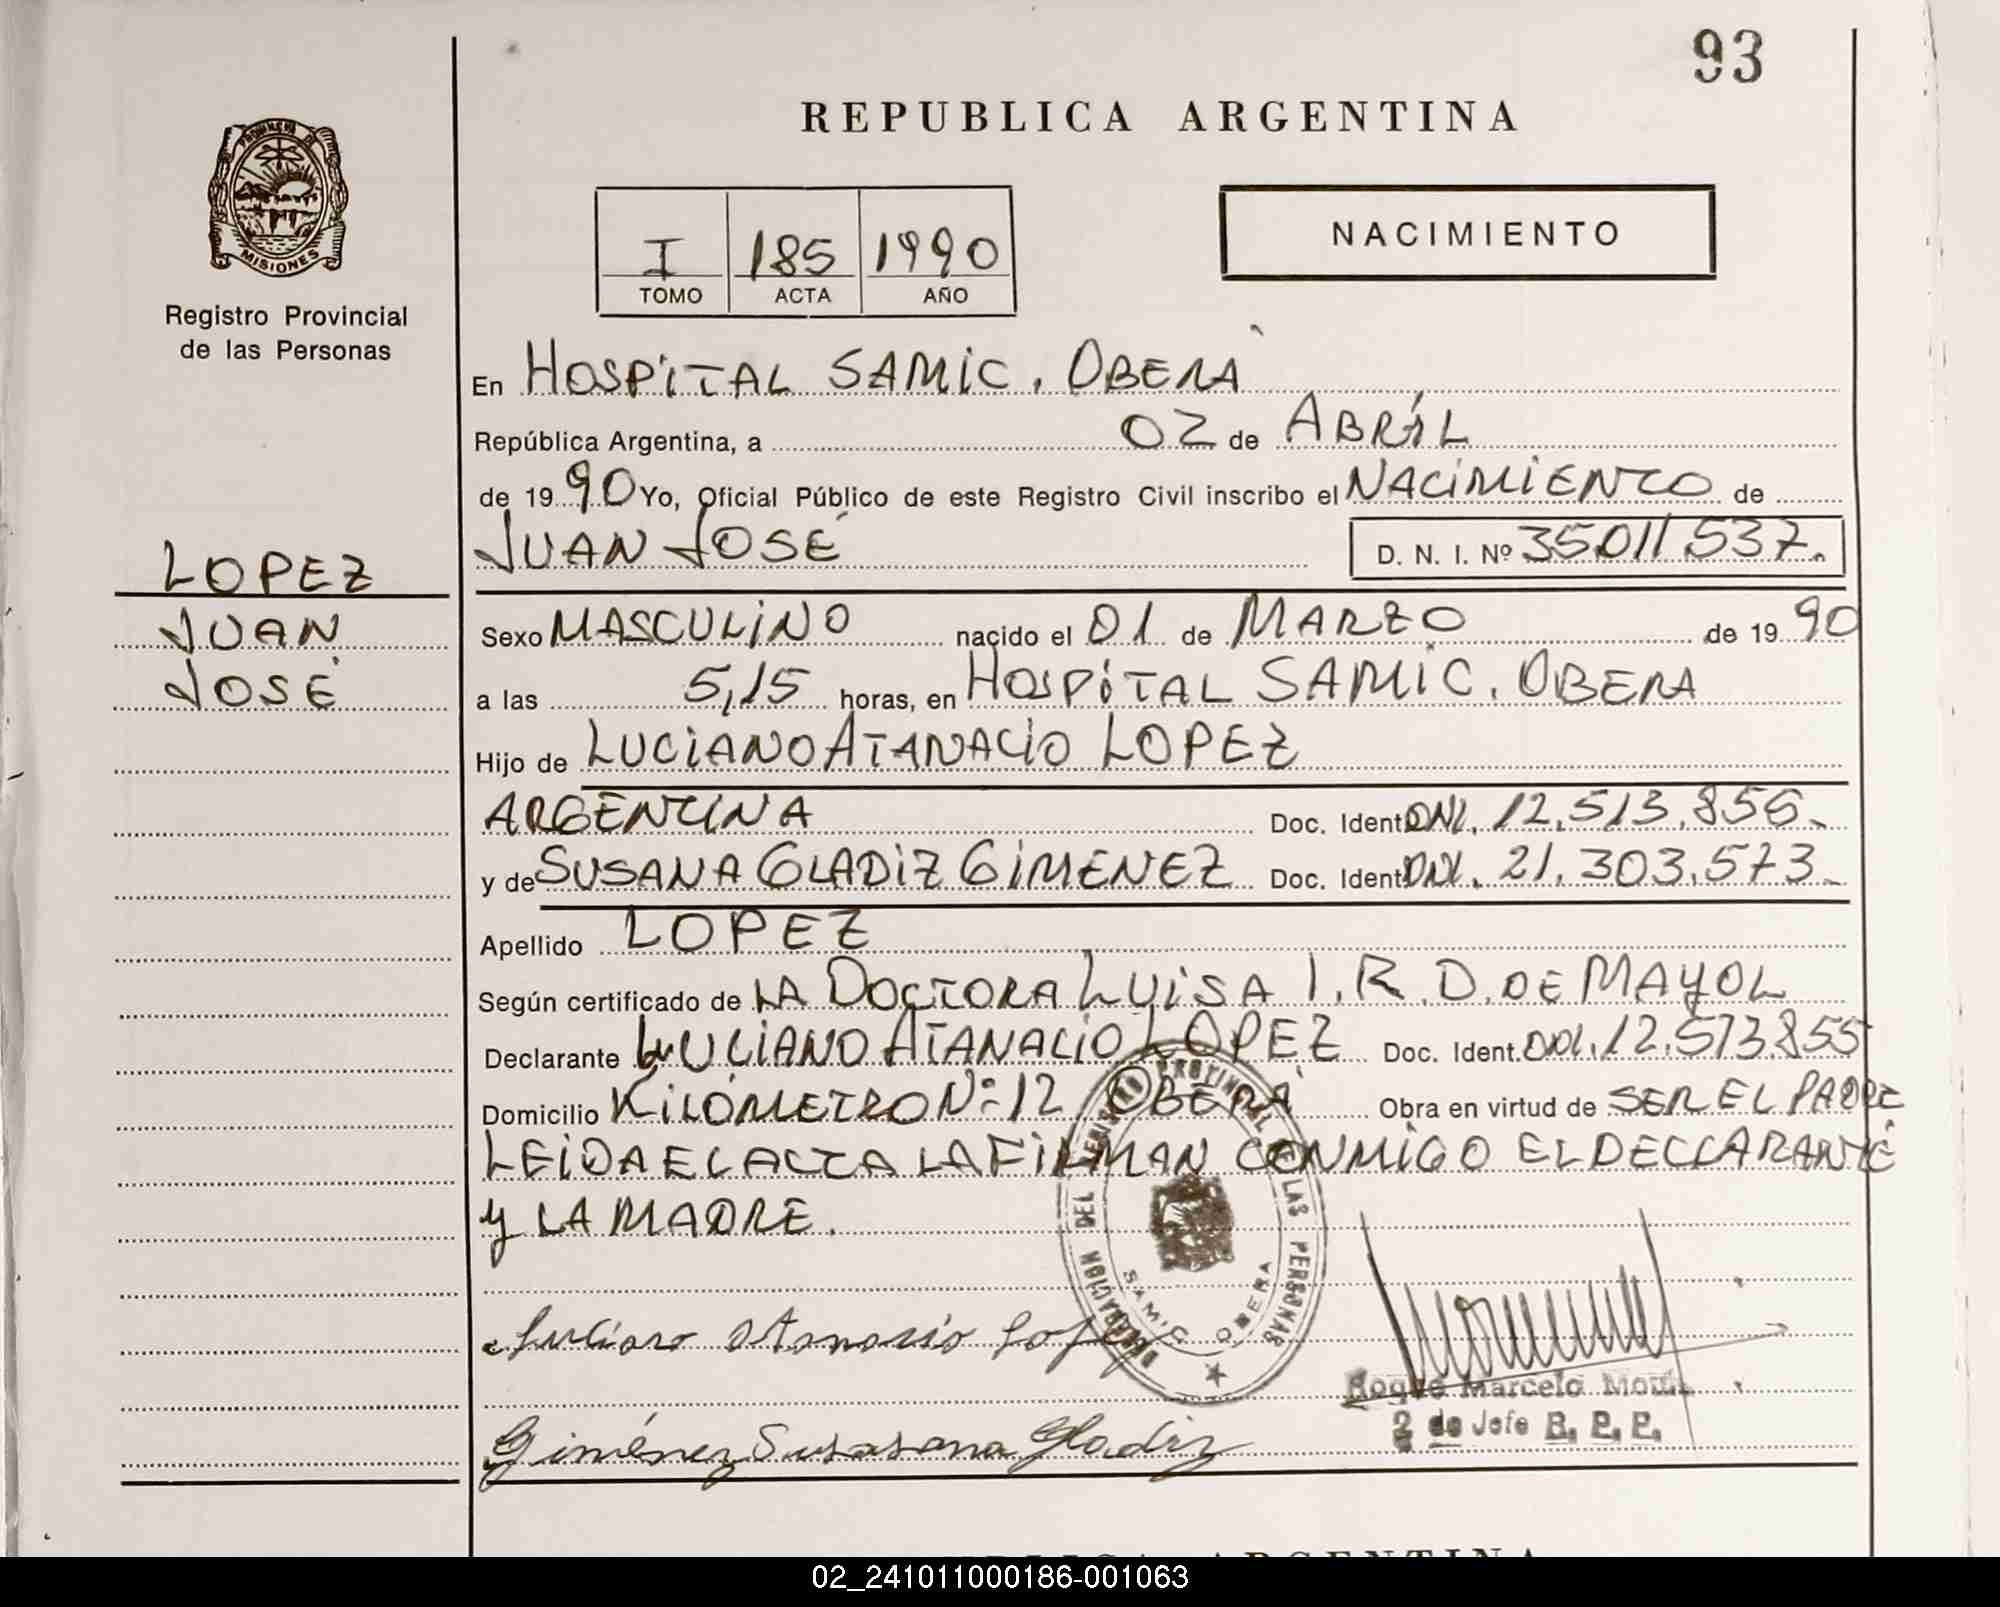 93
REPUBLICA ARGENTINA
PROVINCIA DE
MISIONES
Registro Provincial
de las Personas
I 185 1990
TOMO ACTA AÑO
NACIMIENTO
En HOSPITAL SAMIC. OBERÁ
República Argentina, a 02 de ABRIL
de 1990 Yo, Oficial Público de este Registro Civil inscribo el NACIMIENTO de
JUAN JOSÉ D. N. I. Nº 35011537.
LOPEZ
JUAN
JOSÉ
Sexo MASCULINO nacido el 01 de MARZO de 1990
a las 5,15 horas, en HOSPITAL SAMIC. OBERA
Hijo de LUCIANO ATANACIO LOPEZ
ARGENTINA Doc. Ident. DNI. 12.513.856.
y de SUSANA GLADIZ GIMENEZ Doc. Ident. DNI. 21.303.573.
Apellido LOPEZ
Según certificado de LA DOCTORA LUISA I. R. D. DE MAYOL
Declarante LUCIANO ATANACIO LOPEZ Doc. Ident. DNI. 12.513.855
Domicilio KILÓMETRO Nº 12 OBERÁ Obra en virtud de SER EL PADRE
LEIDA EL ACTA LA FIRMAN CONMIGO EL DECLARANTE
Y LA MADRE.
DEL REGISTRO PROVINCIAL DE LAS PERSONAS
SAMIC OBERA
Luciano Atanacio Lopez
Roque Marcelo
2 do Jefe R. P. P.
Giménez Susasana Gladiz
REPUBLICA ARGENTINA
02_241011000186-001063